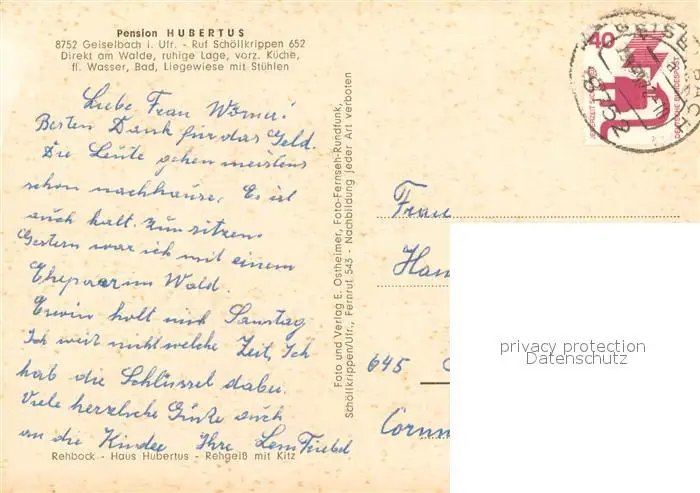 Pension HUBERTUS
8752 Geiselbach i. Ufr. - Ruf Schöllkrippen 652
Direkt am Walde, ruhige Lage, vorz. Küche,
fl. Wasser, Bad, Liegewiese mit Stühlen
Liebe Frau Wörner!
Besten Dank für das Geld.
Die Leute gehen meistens
schon nachhause. Es ist
auch kalt. zum sitzen.
Gestern war ich mit einem
Ehepaar im Wald.
Erwin holt mich Samstag
Ich weis nicht welche Zeit, Ich
hab die Schlüssel dabei.
Viele herzliche Grüße auch
an die Kinder Ihre
Rehbock - Haus Hubertus - Rehgeiß mit Kitz
Foto und Verlag E. Ostheimer, Foto-Fernseh-Rundfunk,
Schöllkrippen/Ufr., Fernruf 545 - Nachbildung jeder Art verboten
40
JEDERZEIT SICHERHEIT
DEUTSCHE BUNDESPOST
8752
Frau
Han
645
privacy protection
Datenschutz